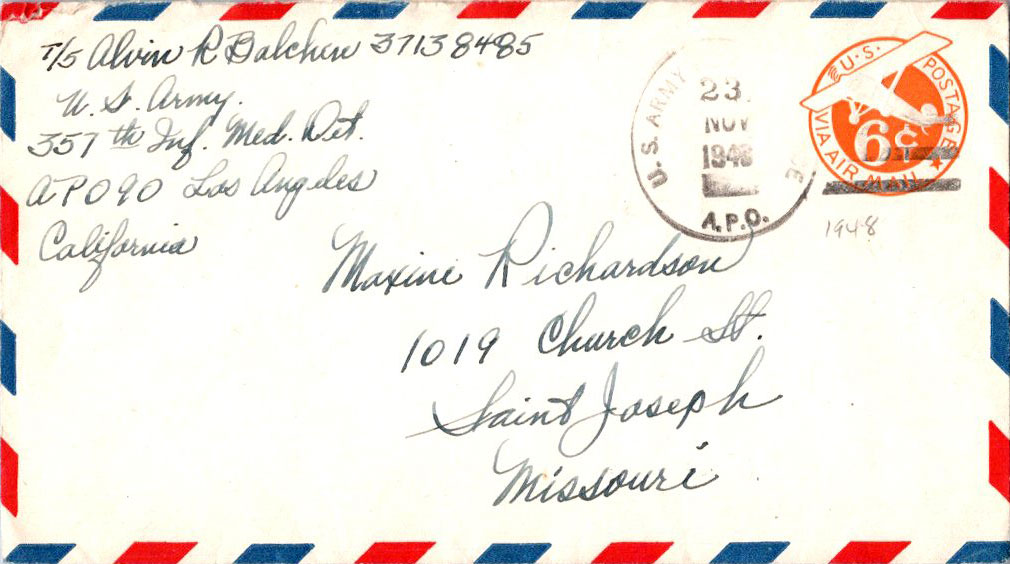 T/5 Alvin R Balchen 37138485
U.S. Army.
357th Inf. Med. Det.
APO 90 Los Angeles
California
U.S. ARMY
23
NOV
194
A.P.O.
U.S. POSTAGE
6¢
VIA AIR MAIL
1948
Maxine Richardson
1019 Church St.
Saint Joseph
Missouri